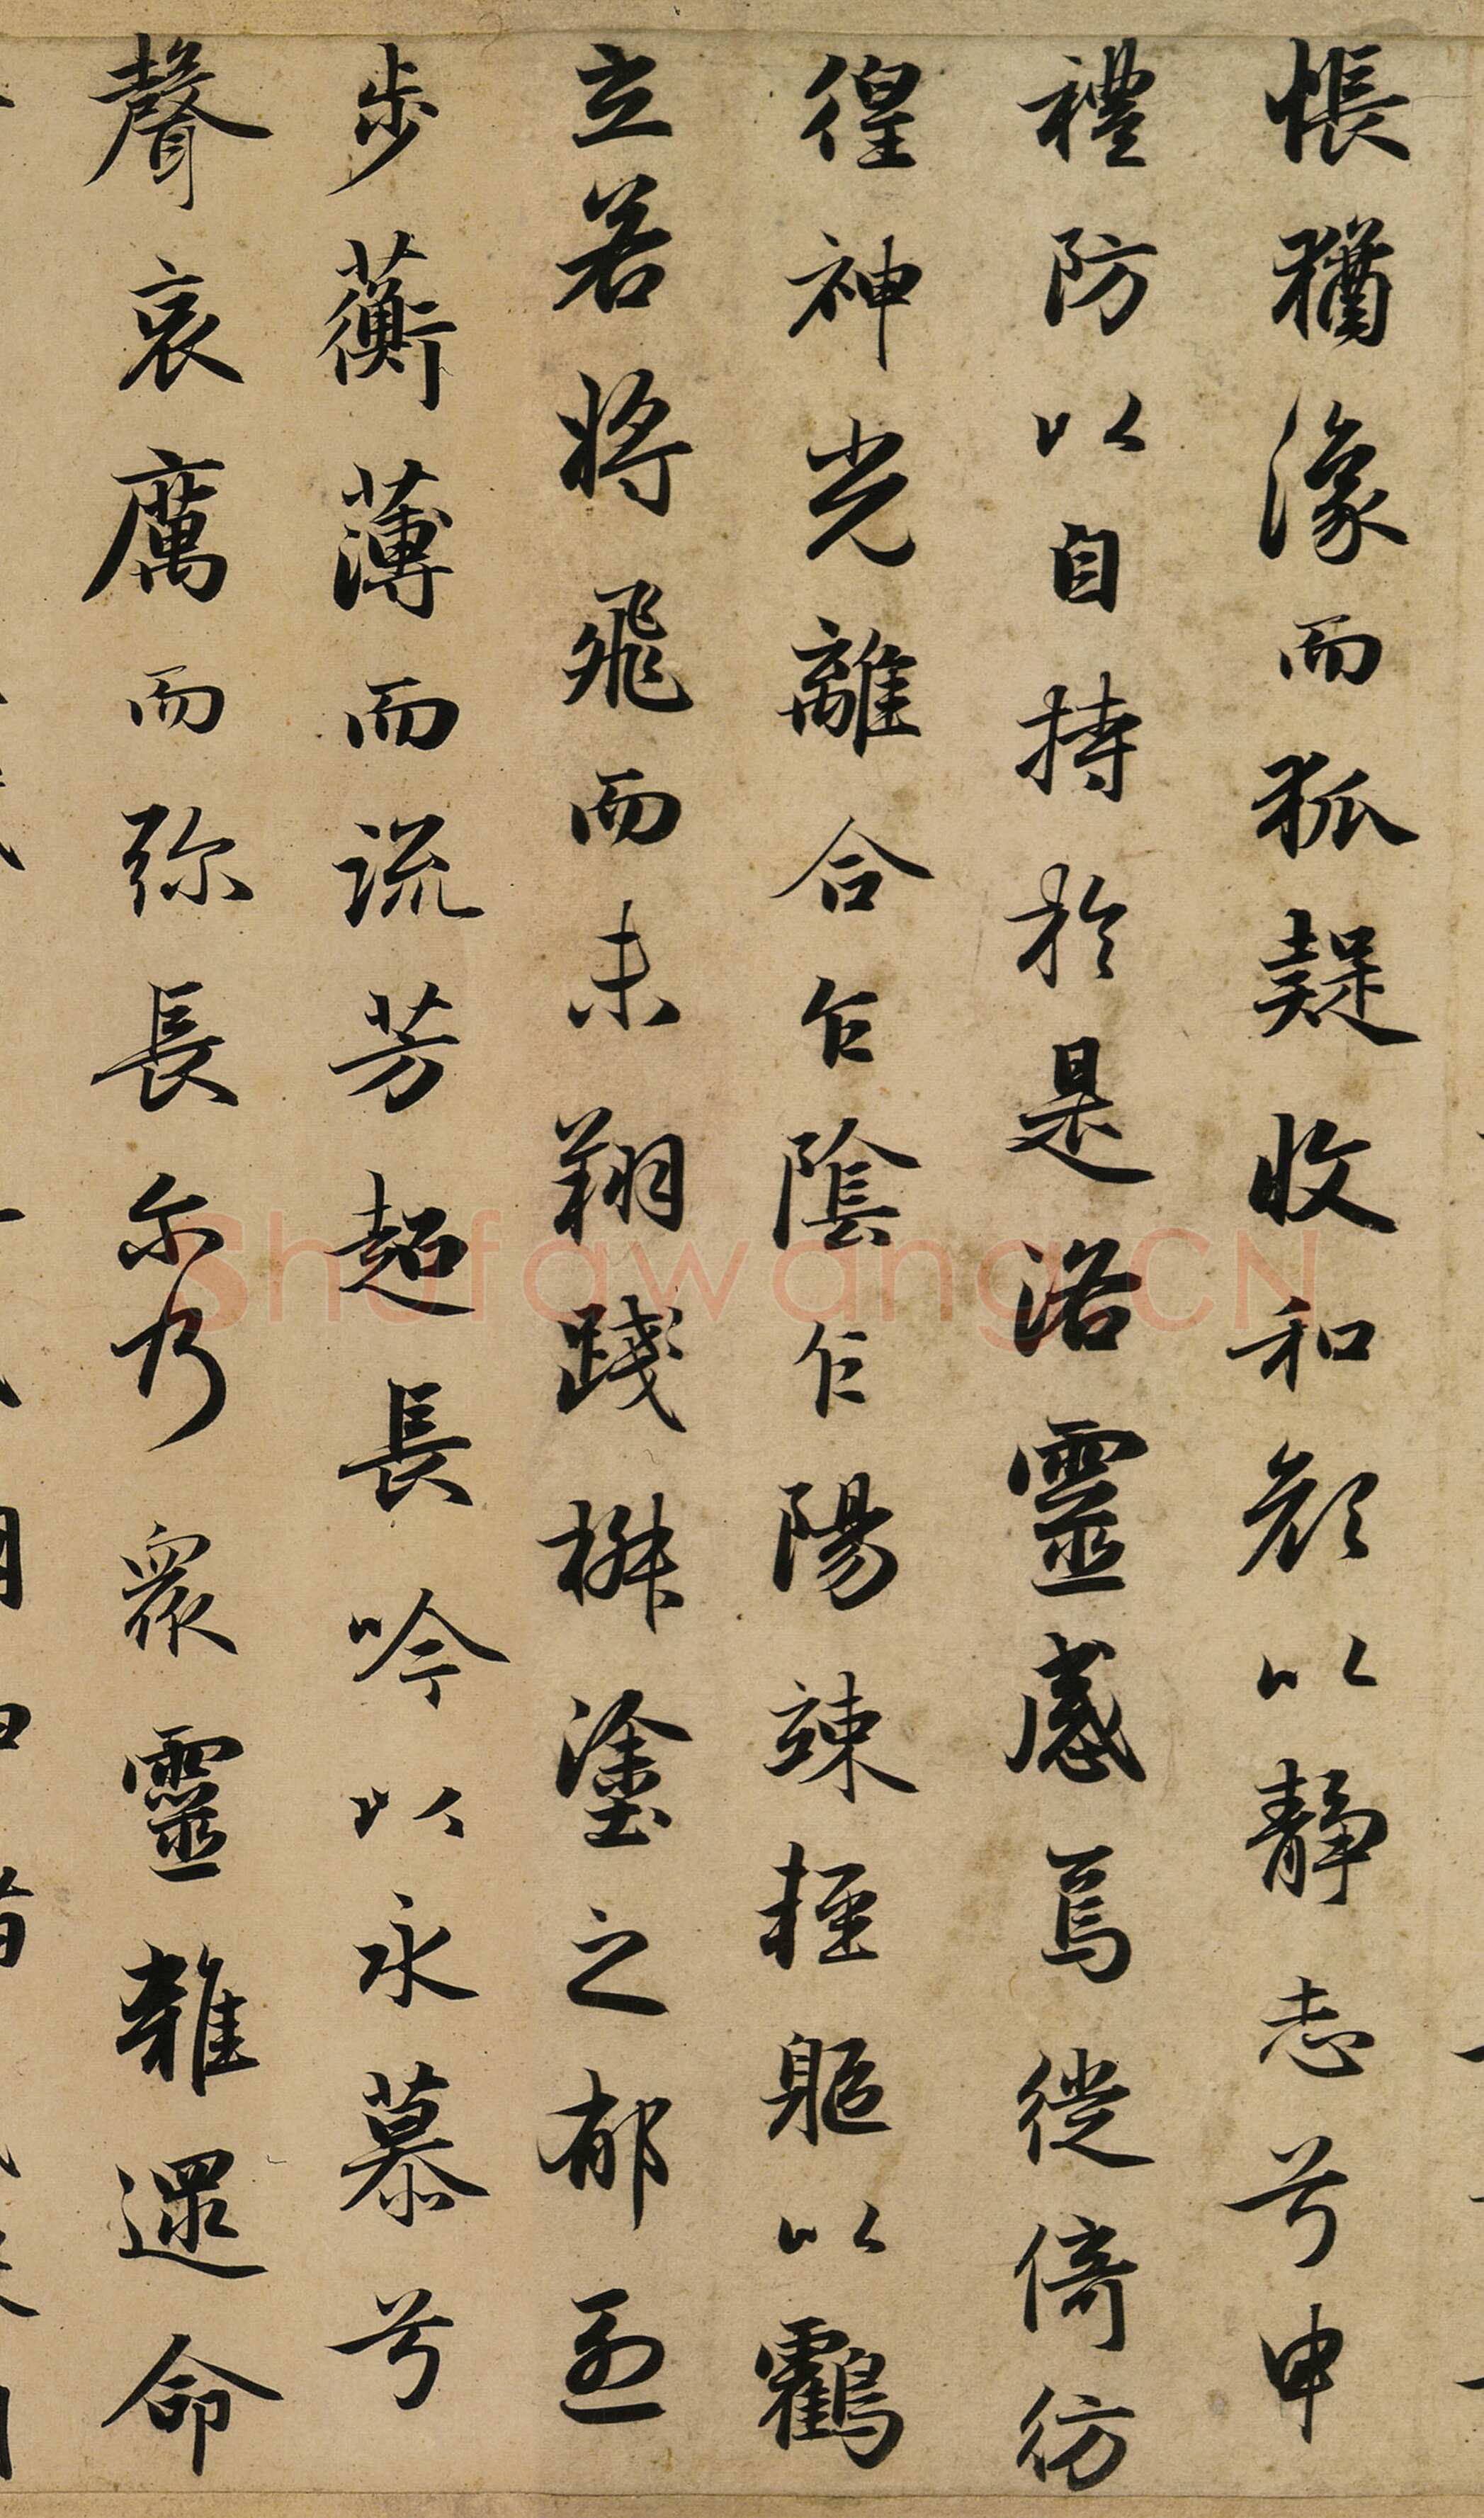 悵猶瀁而狐疑收和顔以静志兮申
禮防以自持於是洛靈感焉徙倚彷
徨神光離合乍陰乍陽竦輕軀以鶴
立若將飛而未翔踐椒塗之郁烈
步蘅薄而流芳超長吟以永慕兮
聲哀厲而弥長尔乃衆靈雜遝命
Shufawang.CN